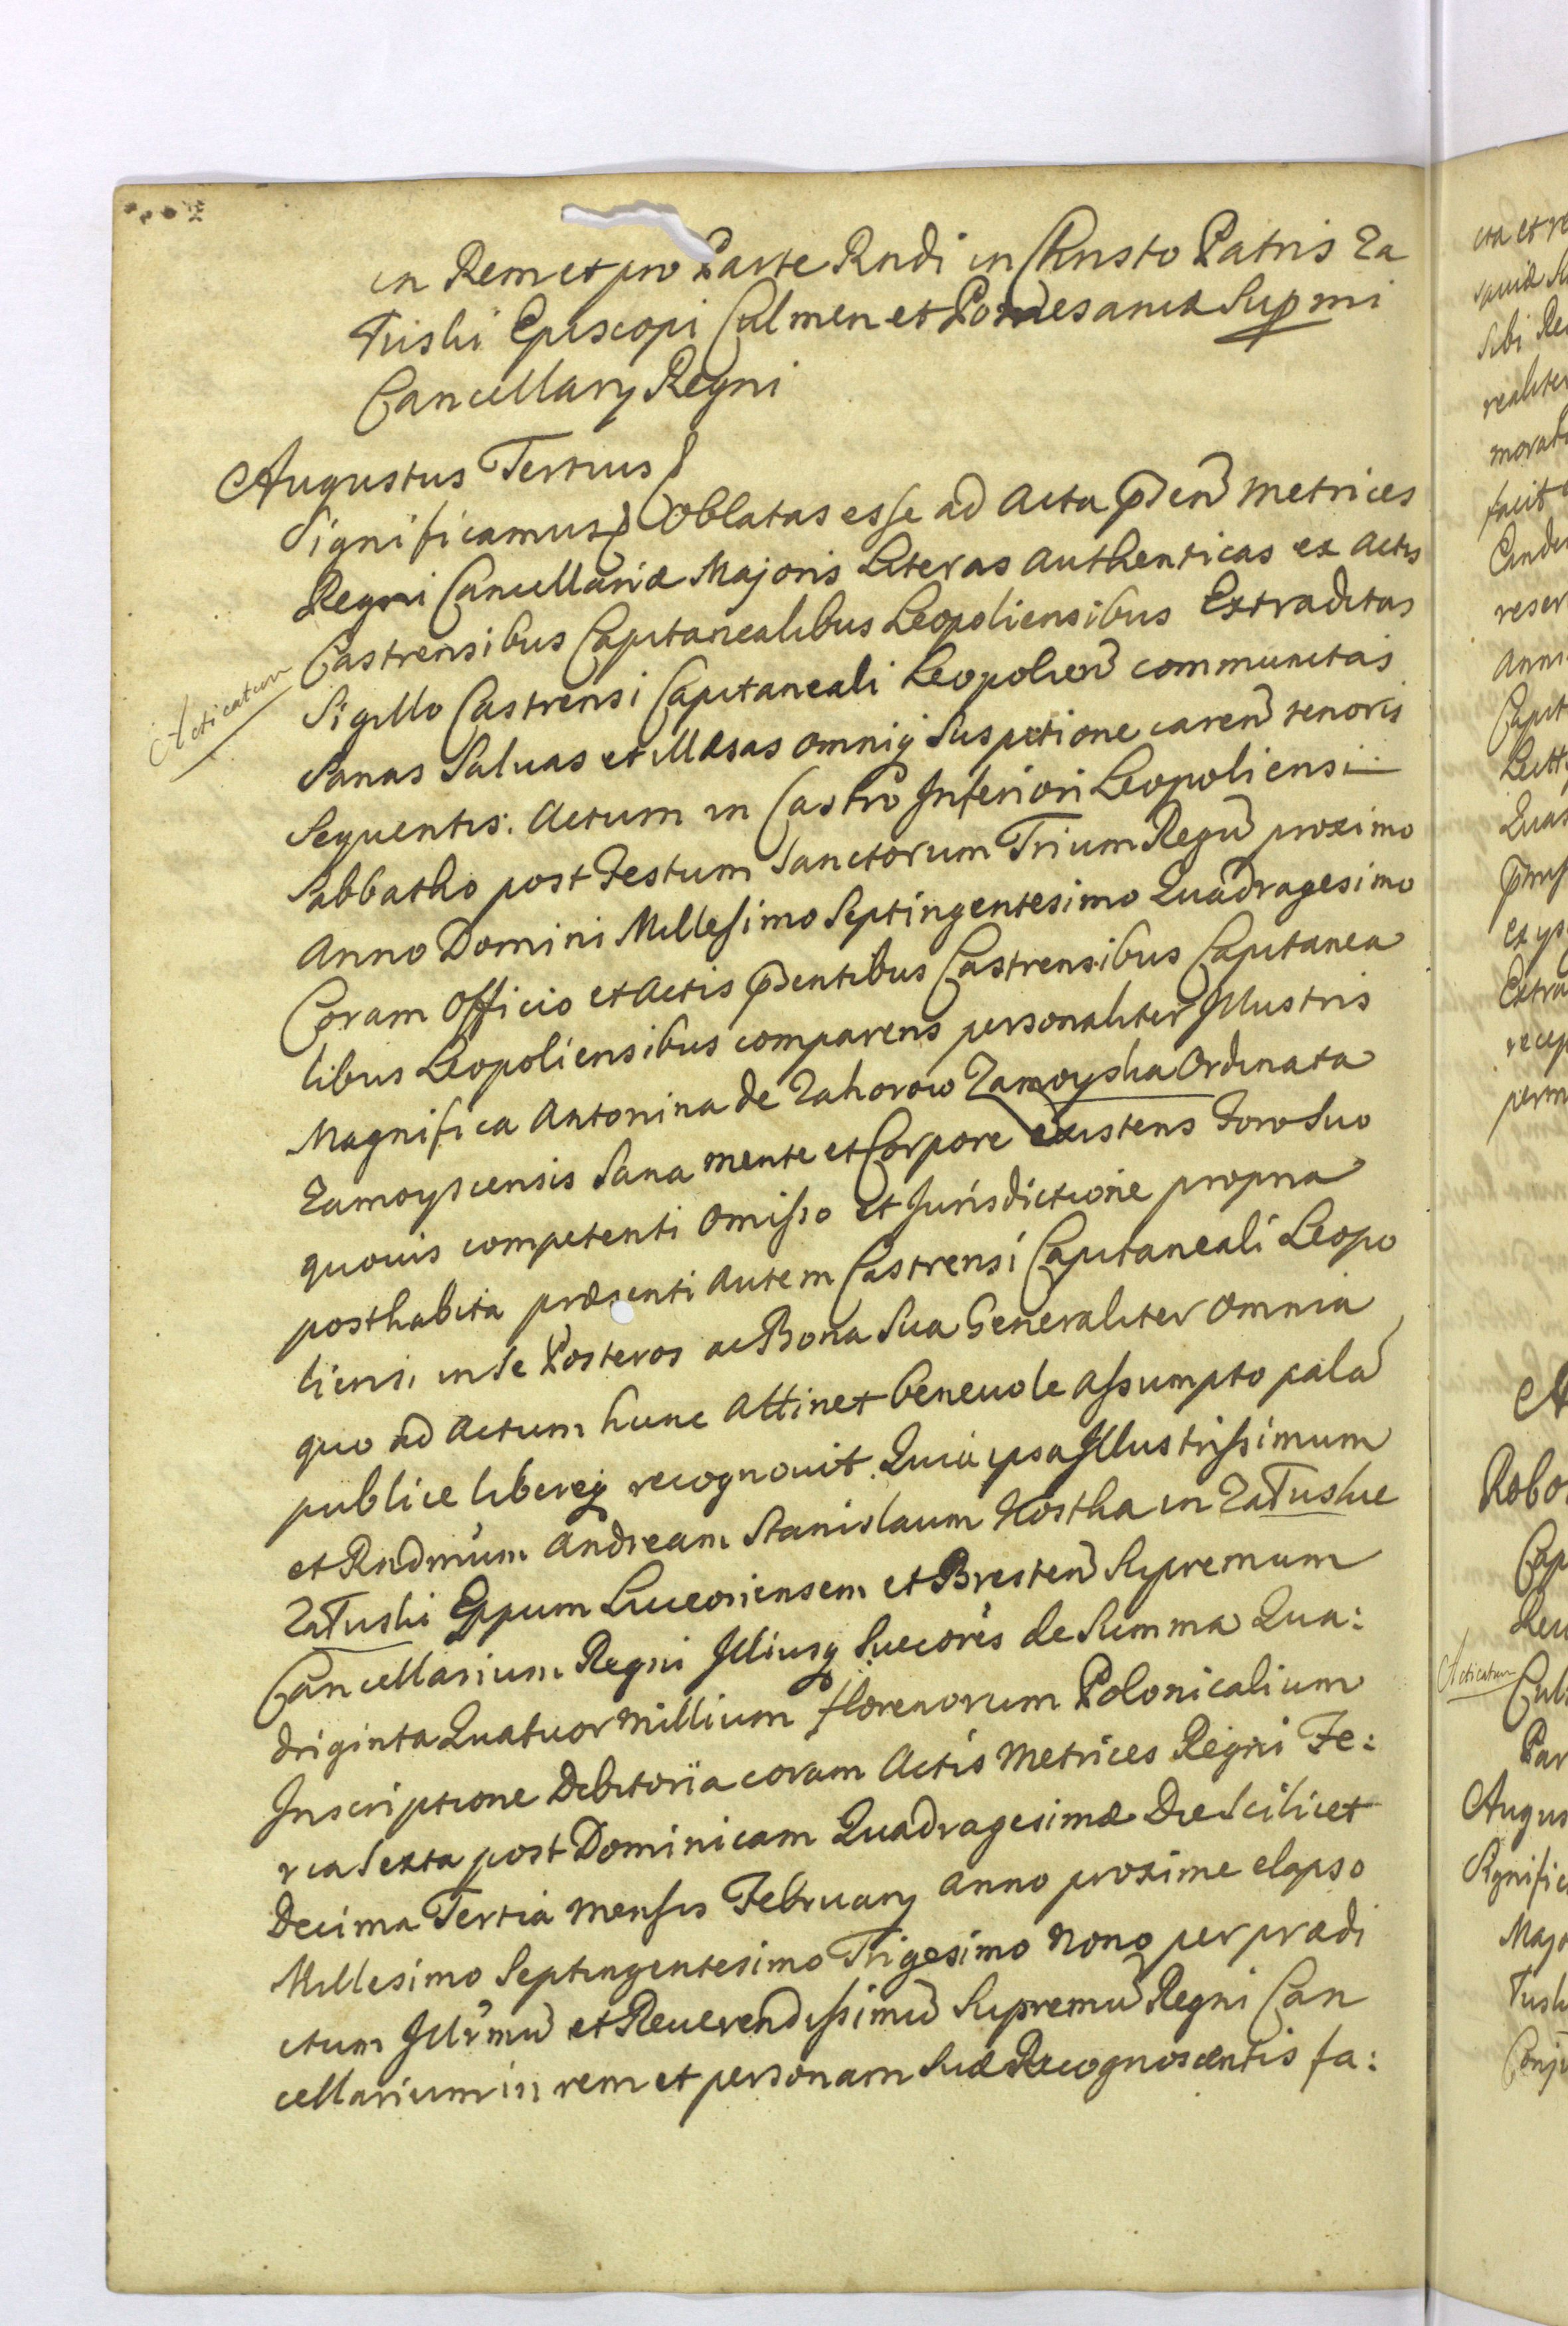 in Rem et pro Parte Rndi in Christo Patris Za
Tuski Episcopi Culmen et Pomesaniæ Supmi
Cancellarÿ Regni
Augustus Tertius
Significamus Oblatas esse ad Acta p̃sen̄ Metrices
Regni Cancellariæ Majoris Literas Authenticas ex Actis
Castrensibus Capitanealibus Leopoliensibus Extraditas
Acticatum
Sigillo Castrensi Capitaneali Leopolien̄ communitas
Sanas Saluas et illæsas omniq Suspitione caren̄ tenoris
Sequentis. Actum in Castro Inferiori Leopoliensi
Sabbatho post Festum Sanctorum Trium Regū proximo
Anno Domini Millesimo Septingentesimo Quadragesimo
Coram Officio et Actis p̃sentibus Castrensibus Capitanea
libus Leopoliensibus comparens personaliter Illustris
Magnifica Antonina de Zahorow Zamoyska Ordinata
Zamoyscensis Sana mente et Corpore existens Foro Suo
quovis competenti Omisso et Jurisdictione propria
posthabita præsenti autem Castrensi Capitaneali Leopo
liensi in Se Posteros ac Bona Sua Generaliter Omnia
quo ad Actum hunc Attinet benevole Assumpto palā
publice libereq recognovit. Quia ipsa Illustrissimum
et Rndmum Andream Stanislaum Kostka in ZaTuskie
ZaTuski Eppum Luceoriensem et Bresten̄ Supremum
Cancellarium Regni Illiusq Succores de Summa Qua:
driginta Quatuor Millium florenorum Polonicalium
Inscriptione Debitoria coram Actis Metrices Regni Fe:
ria Sexta post Dominicam Quadragesimæ Die Scilicet
Decima Tertia Mensis Februarÿ Anno proxime elapso
Millesimo Septingentesimo Trigesimo Nono per prædi
ctum Illr̃mū et Reverendissimū Supremū Regni Can
cellarium in rem et personam Suæ Recognoscentis fa: